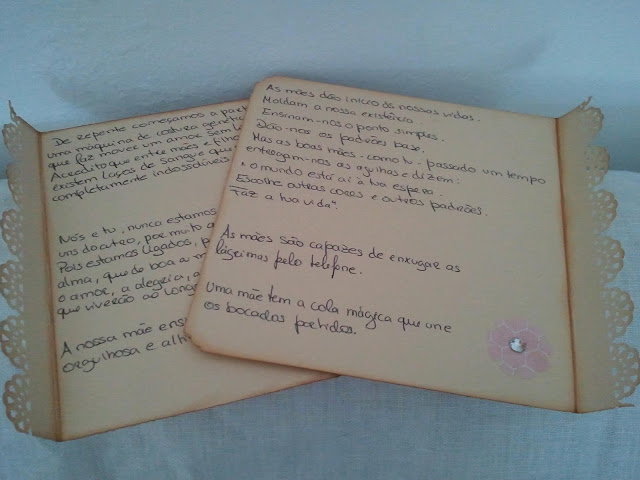 De repente começamos a part
uma máquina de costura genétic
que faz mover um amor sem l
Acredito que entre mães e filh
existem laços de sangue que
completamente indissociáveis
Nós e tu, nunca estamos
uns do outro, por muito
Pois estamos ligados, p
alma, que do boa a m
o amor, a alegria, a
que viverão ao longo
A nossa mãe ensi
orgulhosa e
As mães dão início às nossas vidas.
Moldam a nossa existência.
Ensinam-nos o ponto simples.
Dão-nos os padrões base.
Mas as boas mães - como tu - passado um tempo
entregam-nos as agulhas e dizem:
"o mundo está aí à tua espera.
Escolhe outras cores e outros padrões.
Faz a tua vida".
As mães são capazes de enxugar as
lágrimas pelo telefone.
Uma mãe tem a cola mágica que une
os bocados partidos.